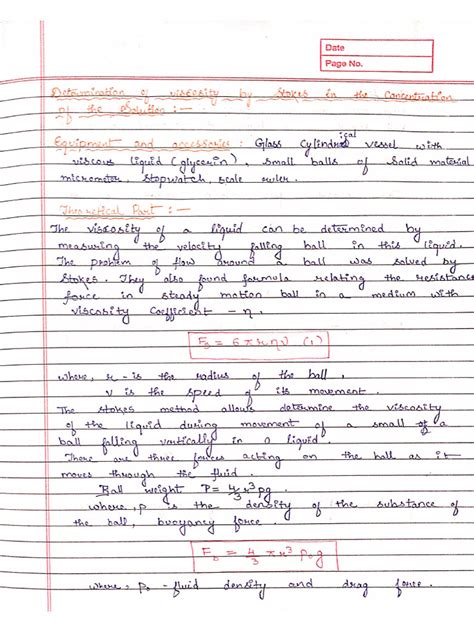 Date
Page No.
Determination of viscosity by Stokes in the Concentration
of the Solution :-
Equipment and accessories : Glass Cylindrical vessel with
viscous liquid (glycerin), small balls of Solid material
micrometer, Stopwatch, scale ruler.
Theoretical Part :-
The viscosity of a liquid can be determined by
measuring the velocity falling ball in this liquid.
The problem of flow around a ball was solved by
Stokes. They also found formula relating the resistance
force in steady motion ball in a medium with
viscosity Coefficient - η.
= 6πrηv (1)
where, r - is the radius of the ball,
v is the speed of its movement.
The stokes method allows determine the viscosity
of the liquid during movement of a small of a
ball falling vertically in a liquid.
There are three forces acting on the ball as it
moves through the fluid.
Ball weight P= 4/3 r³ρg.
where, ρ is the density of the substance of
the ball, buoyancy force.
F₀ = 4/3 πr³ρ₀g
where, ρ₀ - fluid density and drag force.